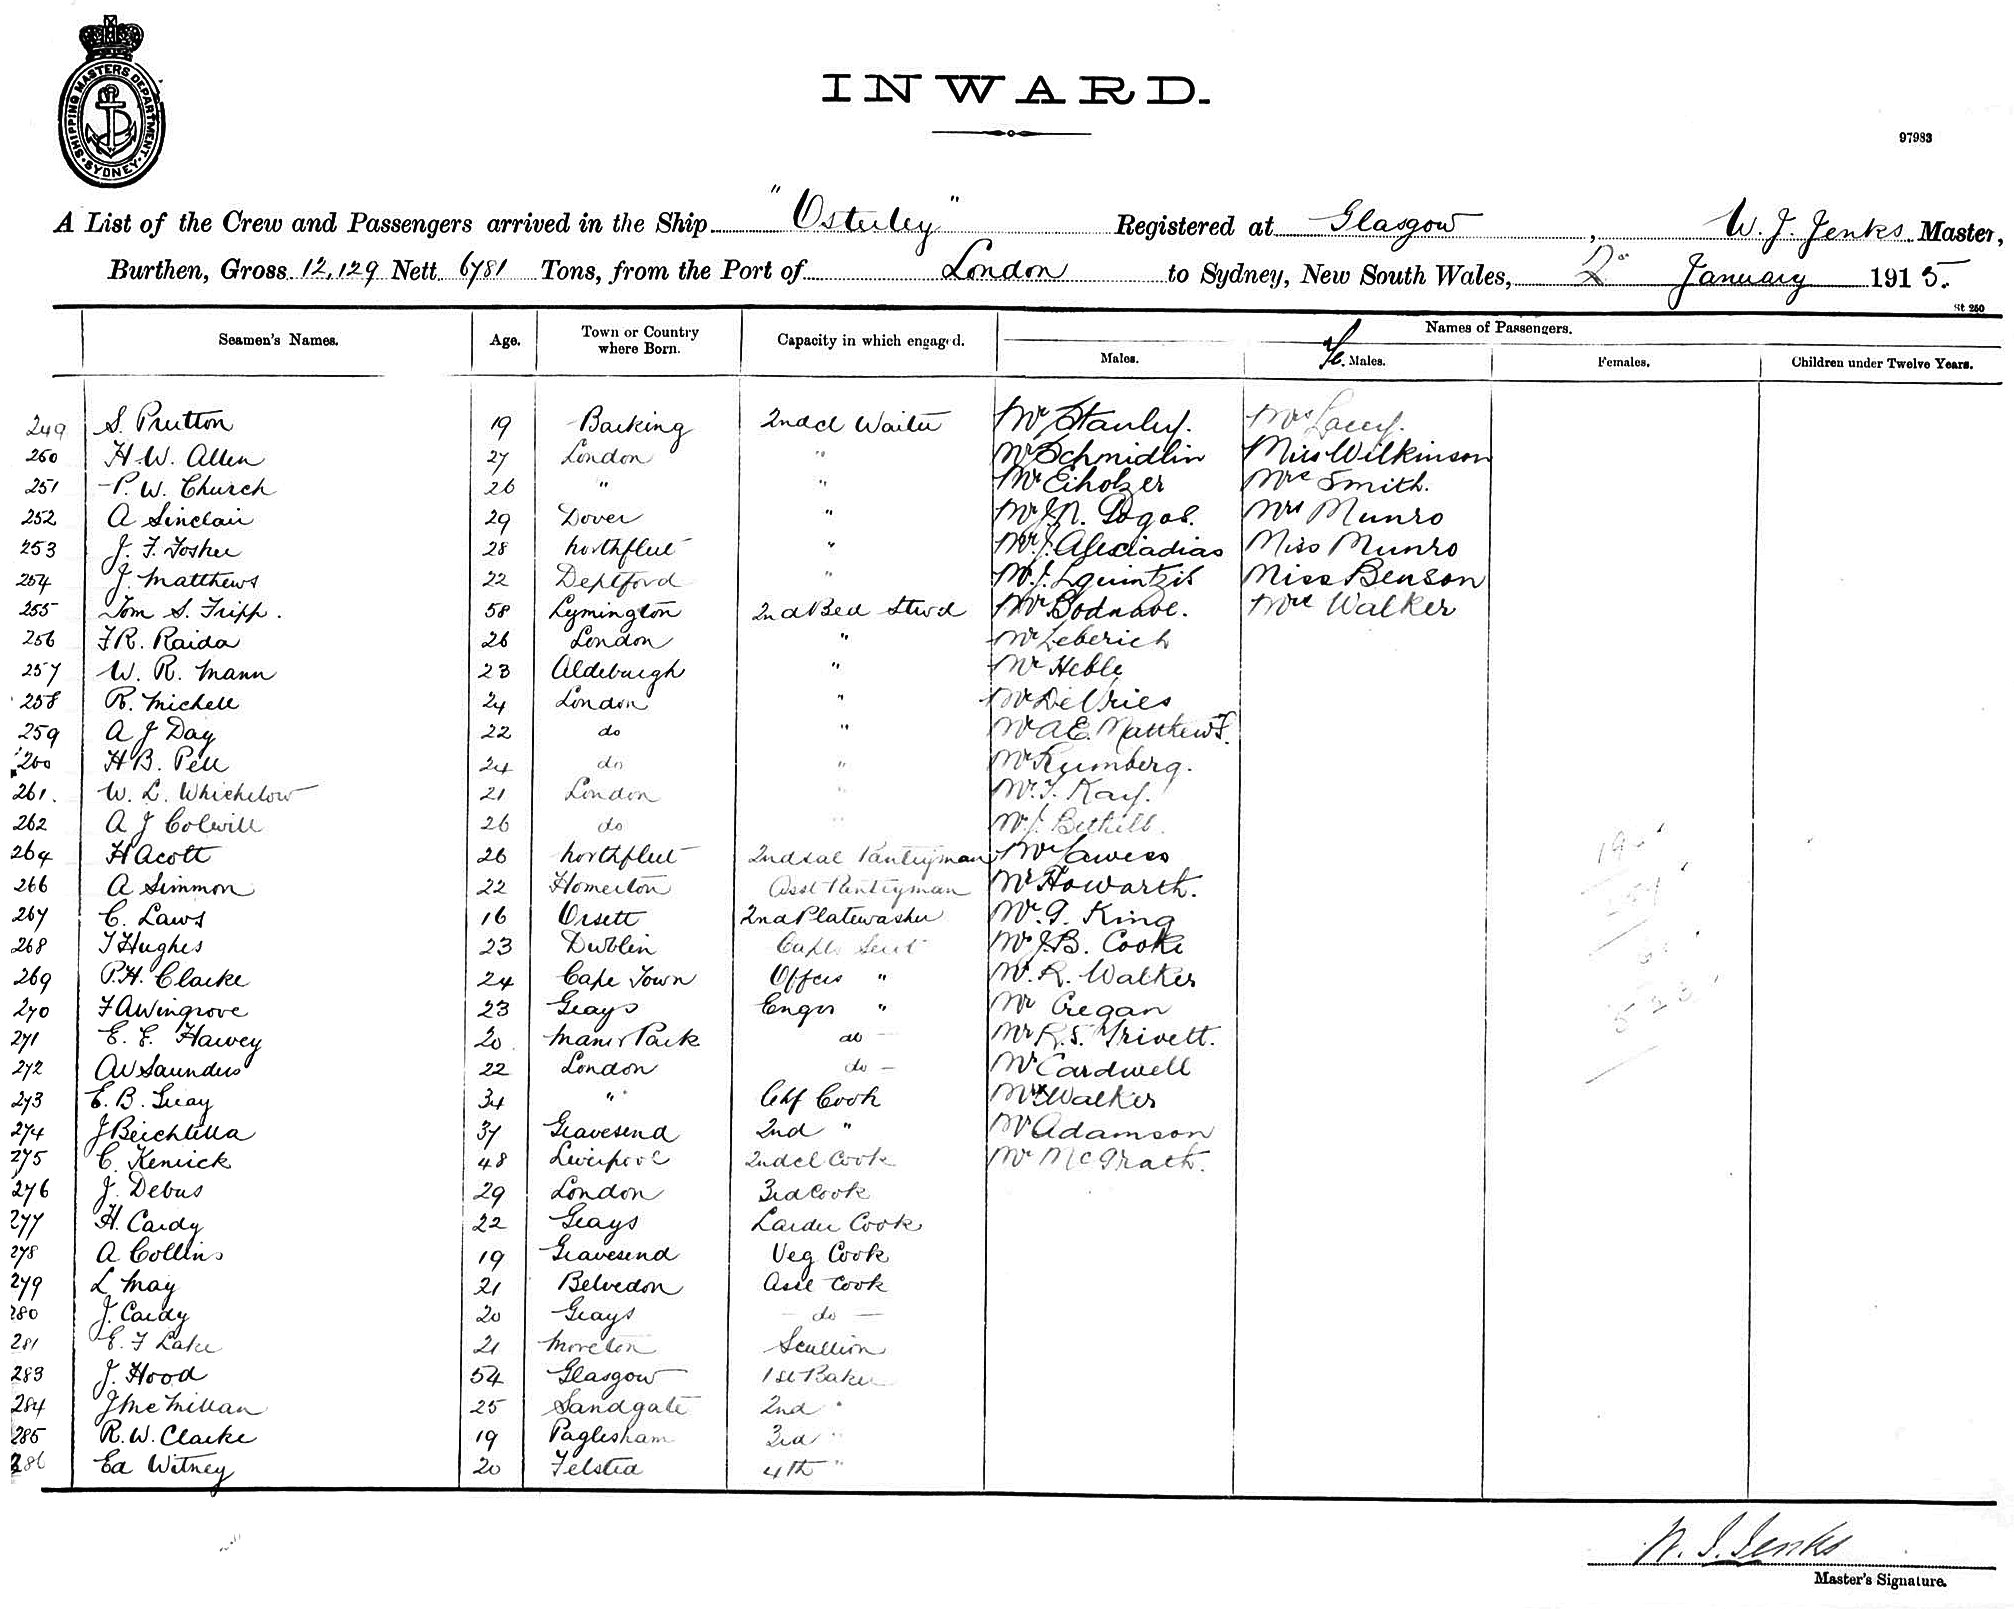 SHIPPING MASTERS DEPARTMENT. SYDNEY
INWARD.
97983
A List of the Crew and Passengers arrived in the Ship "Osterley" Registered at Glasgow, W. J. Jenks Master,
Burthen, Gross 12,129 Nett 6781 Tons, from the Port of London to Sydney, New South Wales, 2 January 1915.
St 250
Seamen's Names. Age. Town or Country where Born. Capacity in which engaged. Names of Passengers.
Males. Fe. Males. Females. Children under Twelve Years.
249 S. Prutton 19 Barking 2nd cl Waiter Mr Stanley. Mrs Lacey.
250 H. W. Allen 27 London " Mr Schmidlin Miss Wilkinson
251 P. W. Church 26 " " Mr Eiholzer Mrs Smith.
252 A Sinclair 29 Dover " Mr J. N. Mrs Munro
253 J. F. Tosher 28 Northfleet " Mr J. Miss Munro
254 J. Matthews 22 Deptford " Mr J. Miss Benson
255 Tom S. Tripp. 58 Lymington 2nd Bed Stwd Mr Mrs Walker
256 F. R. Raida 26 London " Mr Leberich
257 W. R. Mann 23 Aldeburgh " Mr Heble
258 R. Michell 24 London " Mr De Vries
259 A J Day 22 do " Mr A E. Matthews.
260 H B. Pell 24 do " Mr Rumberg.
261. W. L. Whichelow 21 London " Mr. T. Kay.
262 A J Colwill 26 do " Mr J.
264 H Acott 26 Northfleet 2nd Sal Pantryman Mr
266 A Simmon 22 Homerton Asst Pantryman Mr Howarth.
267 C. Laws 16 Orsett 2nd Platewasher Mr. G. King
268 T Hughes 23 Dublin Capts Servt Mr J. B. Cooke
269 P. H. Clarke 24 Cape Town Offcrs " Mr. R. Walker
270 F A Wingrove 23 Grays Engrs " Mr Cregan
271 E. E. Harvey 20 Manor Park do - Mr R. S. Trivett.
272 A W Saunders 22 London do - Mr Cardwell
273 E. B. Gray 34 " Chf Cook Mr Walker
274 J 37 Gravesend 2nd " Mr Adamson
275 C. Kenrick 48 Liverpool 2nd cl Cook Mr McGrath.
276 J. Debus 29 London 3rd Cook
277 H. Cardy 22 Grays Larder Cook
278 A Collins 19 Gravesend Veg Cook
279 L May 21 Belvedon Asst Cook
280 J. Cardy 20 Grays - do -
281 E. F Lake 21 Moreton Scullion
283 J. Hood 54 Glasgow 1st Baker
284 J McMillan 25 Sandgate 2nd "
285 R. W. Clarke 19 Paglesham 3rd "
286 Ed Witney 20 Felsted 4th "
W. J. Jenks
Master's Signature.